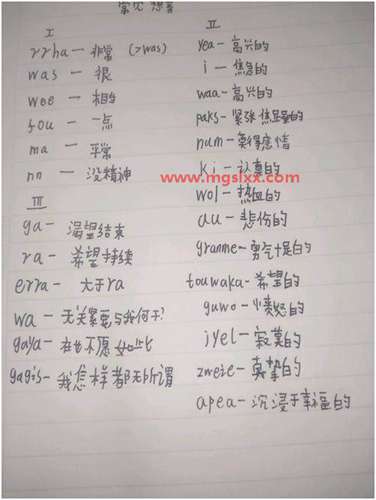 常见 想音
I
rrha — 非常 (>was)
was — 很
wee — 相当
fou — 一点
ma — 平常
nn — 没精神
III
ga — 渴望结束
ra — 希望持续
erra — 大于ra
wa — 无关紧要与我何干?
gaya — 在也不愿如此
gagis — 我怎样都无所谓
II
yea — 高兴的
i — 焦急的
waa — 高兴的
paks — 紧张焦虑的
num — 莫得感情
ki — 认真的
www.mgslxx.com
wol — 热血的
au — 悲伤的
granme — 勇气十足的
touwaka — 希望的
guwo — 愤怒的
jyel — 寂寞的
zweie — 真挚的
apea — 沉浸于幸福的